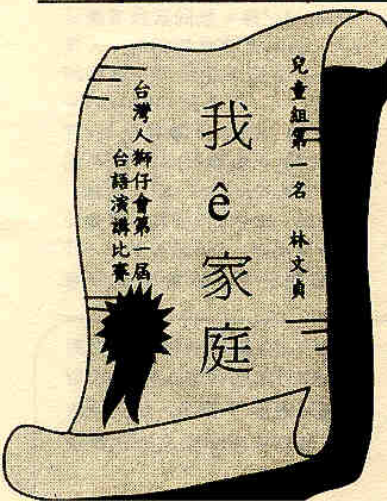 兒童組第一名 林文貞
我ê家庭
台灣人獅仔會第一屆
台語演講比賽